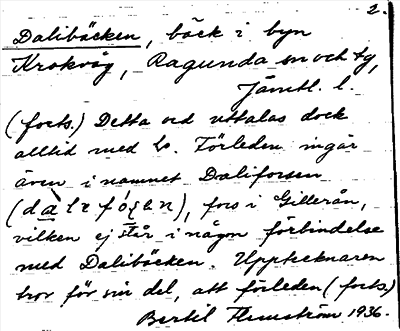 2.
Dalibäcken, bäck i byn
Krokvåg, Ragunda sn och tg,
Jämtl. l.
(forts.) Detta ord uttalas dock
alltid med Förleden ingår
även i namnet Daliforsen
fors i Gillerån,
vilken ej står i någon förbindelse
med Dalibäcken. Upptecknaren
tror för sin del, att förleden (forts.)
Bertil Flemström 1936.